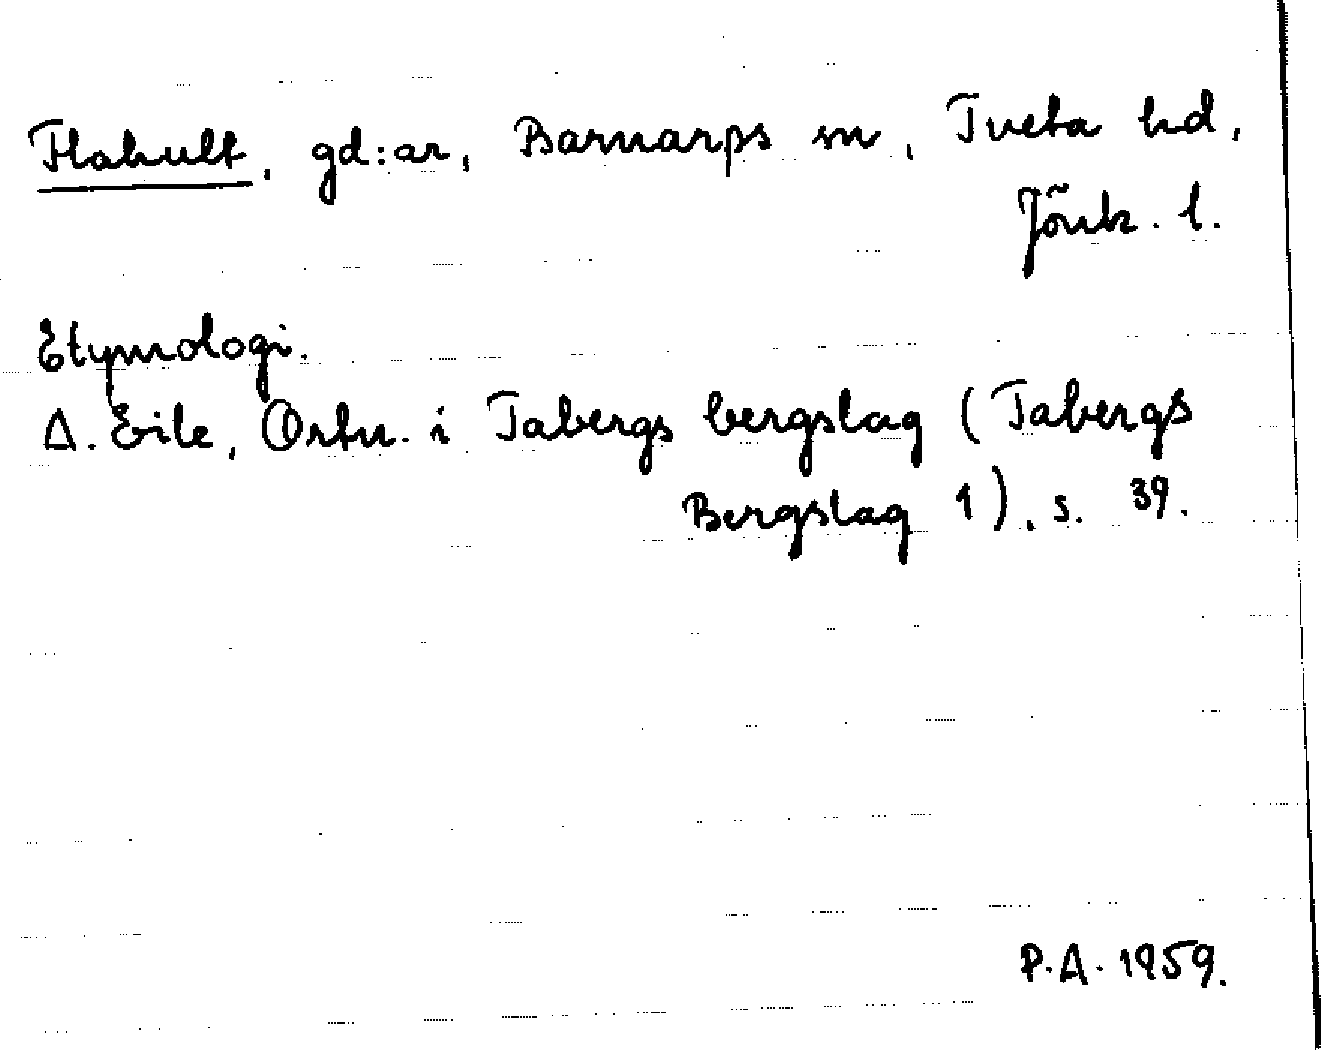 Flahult, gd:ar, Barnarps sn, Tveta hd,
Jönk. l.
Etymologi.
A. Eile, Ortn. i Tabergs bergslag (Tabergs
Bergslag 1), s. 39.
P.A. 1959.